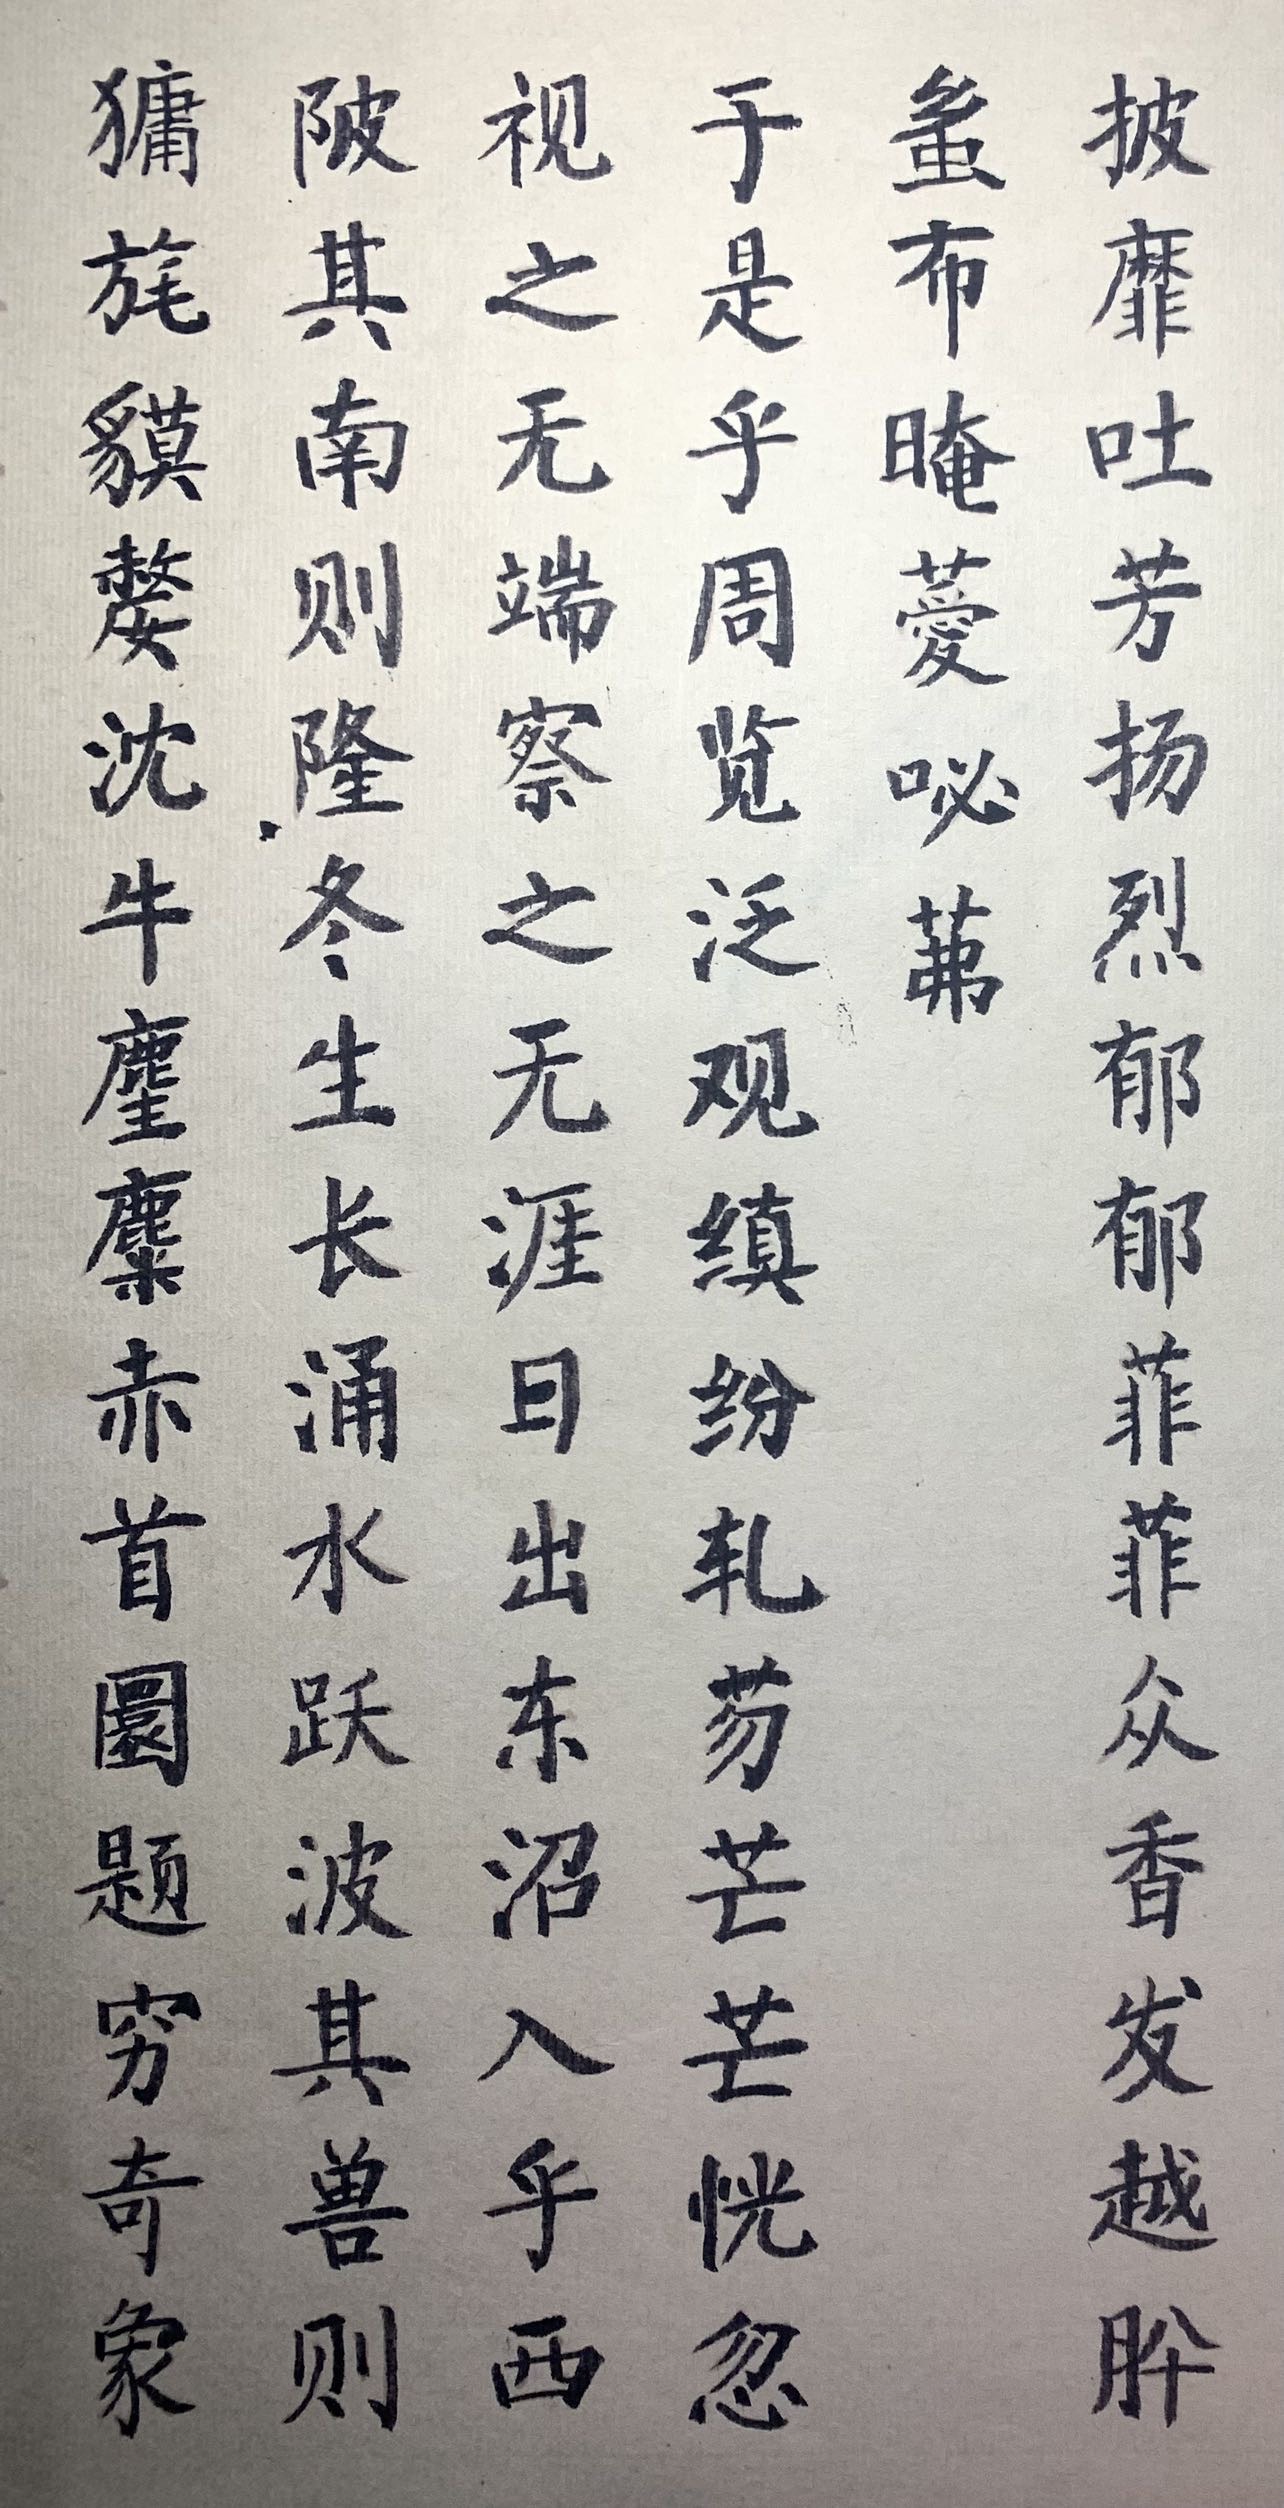 披靡吐芳扬烈郁郁菲菲众香发越肸
蚃布晻薆咇茀
于是乎周览泛观缜纷轧芴芒芒恍忽
视之无端察之无涯日出东沼入乎西
陂其南则隆冬生长涌水跃波其兽则
㺎旄貘嫠沈牛麈麋赤首圜题穷奇象